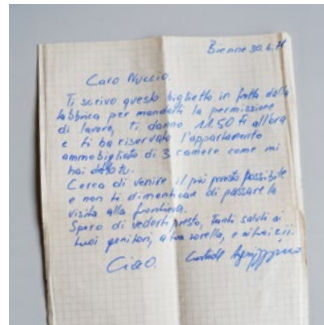 Bienne 30.4.71
Caro Nuccio.
Ti scrivo questo biglietto in fretta dalla
fabbrica per mandarti la permissione
di lavoro, ti danno 11.50 Fr all'ora
e ti ho riservato l'appartamento
ammobigliato di 3 camere come mi
hai detto tu.
Cerca di venire il più presto possibile
e non ti dimenticar di passare la
visita alla frontiera.
Spero di vederti presto, tanti saluti ai
tuoi genitori, a tua sorella, e ai tuoi zii.
Ciao